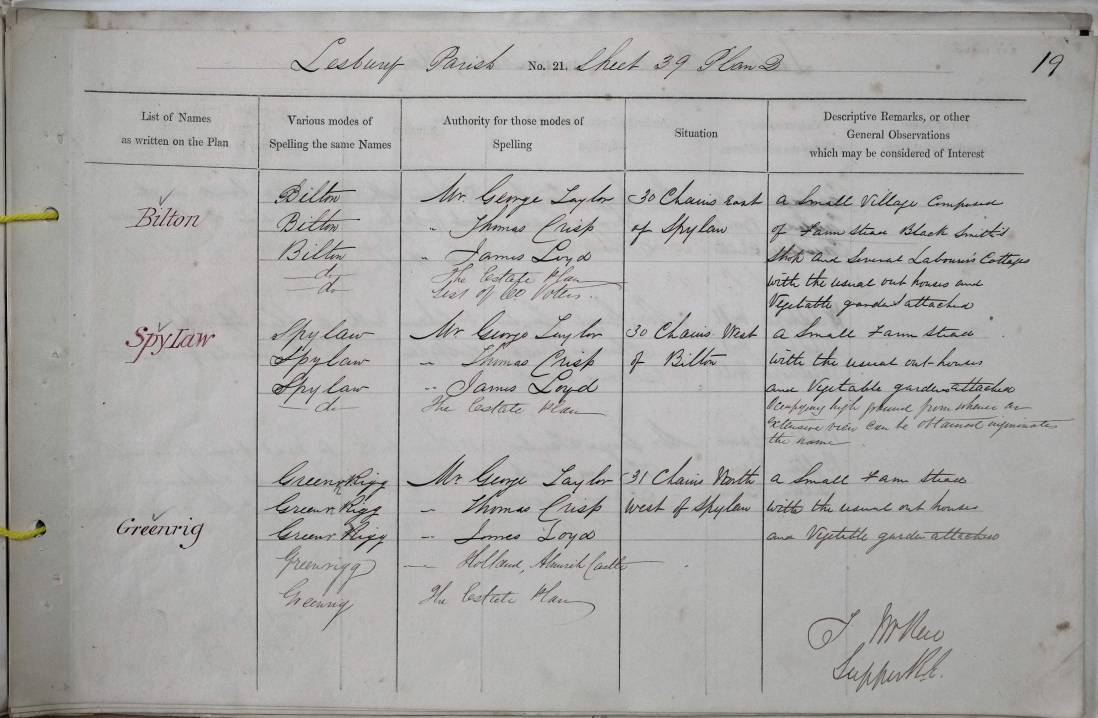 Lesbury Parish No. 21. Sheet 39 Plan D
19
List of Names
as written on the Plan
Various modes of
Spelling the same Names
Authority for those modes of
Spelling
Situation
Descriptive Remarks, or other
General Observations
which may be considered of Interest
Bilton
Bilton
Bilton
Bilton
do
do
Mr. George Taylor
" Thomas Crisp
" James Loyd
The Estate Plan
List of Co Voters.
30 Chains East
of Spylaw
a Small Village Composed
of Farm Stead Black Smith's
Shop and Several Labourers Cottages
with the usual out houses and
Vegetable garden attached
Spy Law
Spylaw
Spylaw
Spylaw
do
Mr. George Taylor
" Thomas Crisp
" James Loyd
The Estate Plan
30 Chains West
of Bilton
a Small Farm Stead
with the usual out houses
and Vegetable garden attached
Occupying high ground from whence an
extensive view can be obtained
the name
Greenrig
Green Rigg
Green Rigg
Green Rigg
Greenrigg
Greenrig
Mr. George Taylor
" Thomas Crisp
" James Loyd
" Holland, Alnwick Castle
The Estate Plan
31 Chains North
west of Spylaw
a Small Farm Stead
with the usual out houses
and Vegetable garden attached